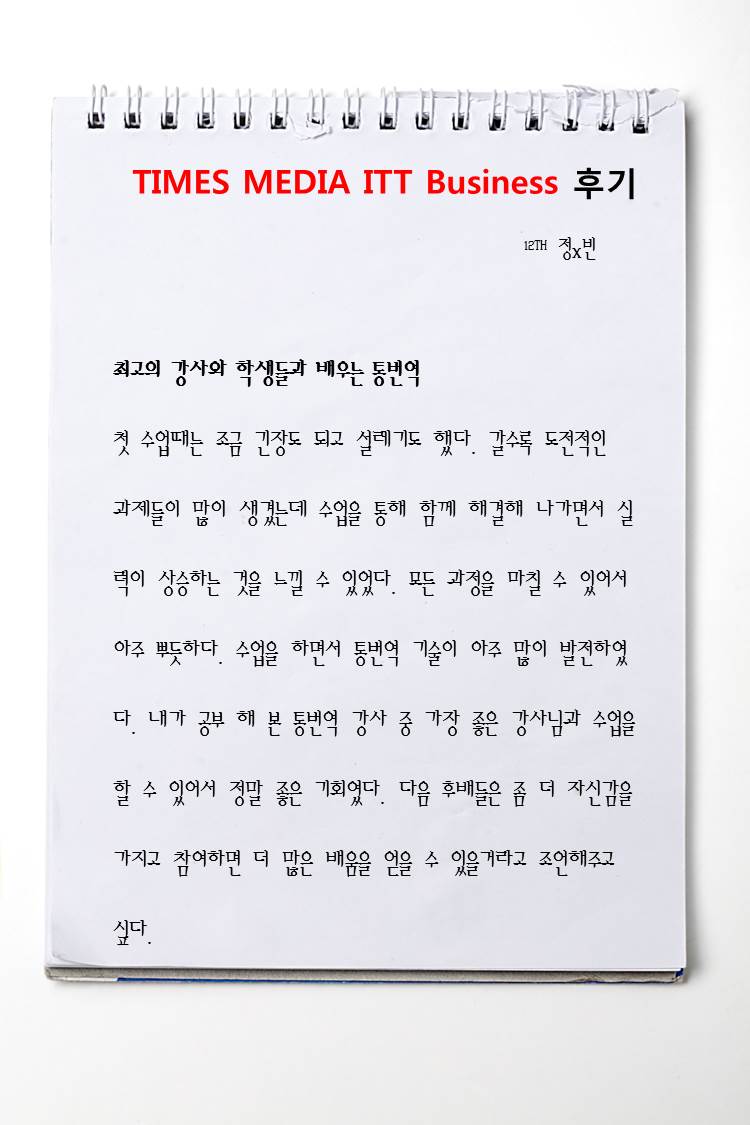 TIMES MEDIA ITT Business 후기
12TH 정x빈
최고의 강사와 학생들과 배우는 통번역
첫 수업때는 조금 긴장도 되고 설레기도 했다. 갈수록 도전적인
과제들이 많이 생겼는데 수업을 통해 함께 해결해 나가면서 실
력이 상승하는 것을 느낄 수 있었다. 모든 과정을 마칠 수 있어서
아주 뿌듯하다. 수업을 하면서 통번역 기술이 아주 많이 발전하였
다. 내가 공부 해 본 통번역 강사 중 가장 좋은 강사님과 수업을
할 수 있어서 정말 좋은 기회였다. 다음 후배들은 좀 더 자신감을
가지고 참여하면 더 많은 배움을 얻을 수 있을거라고 조언해주고
싶다.